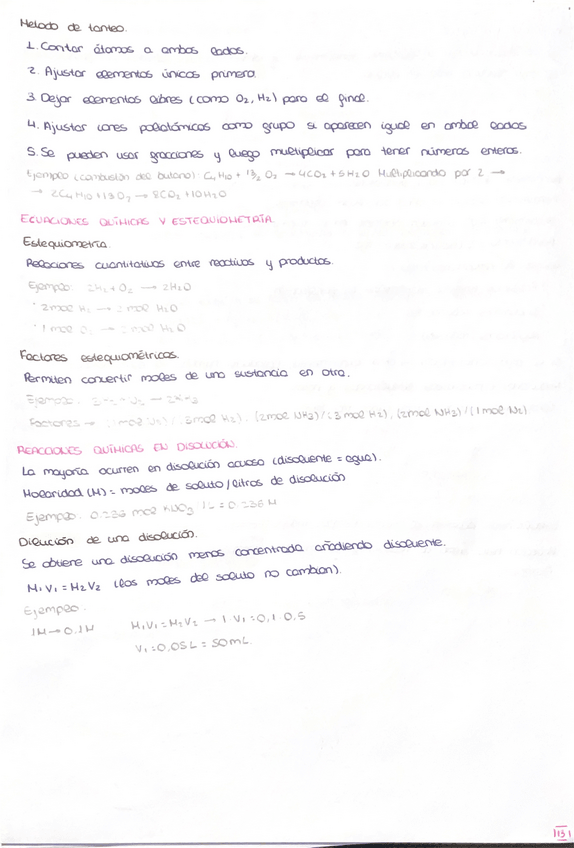 Metodo de tanteo.
1. Contar átomos a ambos lados.
2. Ajustar elementos únicos primero.
3. Dejar elementos libres (como O2, H2) para el final.
4. Ajustar iones poliatómicos como grupo si aparecen igual en ambos lados
5. Se pueden usar fracciones y luego multiplicar para tener números enteros.
Ejemplo (combustión del butano): C4H10 + 13/2 O2 → 4CO2 + 5H2O Multiplicando por 2 →
→ 2C4H10 + 13O2 → 8CO2 + 10H2O
ECUACIONES QUÍMICAS Y ESTEQUIOMETRÍA.
Estequiometria.
Relaciones cuantitativas entre reactivos y productos.
Ejemplo: 2H2 + O2 → 2H2O
· 2 mol H2 → 2 mol H2O
· 1 mol O2 → 2 mol H2O
Factores estequiométricos.
Permiten convertir moles de una sustancia en otra.
Ejemplo: 3H2 + N2 → 2NH3
Factores → (1 mol N2)/(3 mol H2), (2 mol NH3)/(3 mol H2), (2 mol NH3)/(1 mol N2)
REACCIONES QUÍMICAS EN DISOLUCIÓN.
La mayoría ocurren en disolución acuosa (disolvente = agua).
Molaridad (M) = moles de soluto / litros de disolución
Ejemplo: 0.236 mol KNO3 1L = 0.236 M
Dilución de una disolución.
Se obtiene una disolución menos concentrada añadiendo disolvente.
M1V1 = M2V2 (los moles del soluto no cambian).
Ejemplo:
1M → 0.1M M1V1 = M2V2 → 1 V1 = 0,1 0.5
V1 = 0.05L = 50mL.
113